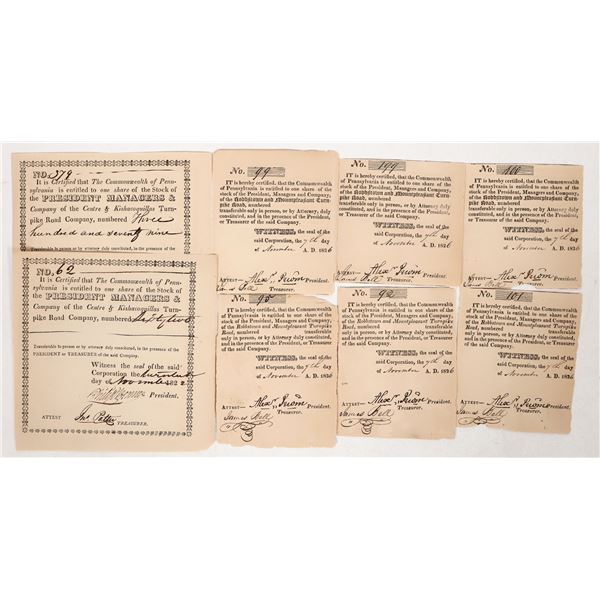 NO. 379
It is Certified that The Commonwealth of Penn-
sylvania is entitled to one share of the Stock of
the PRESIDENT MANAGERS &
Company of the Centre & Kishacoquillas Turn-
pike Road Company, numbered Three
hundred and seventy nine
Transferable in person or by attorney duly constituted, in the presence of the
NO. 62
It is Certified that The Commonwealth of Penn-
sylvania is entitled to one share of the Stock of
the PRESIDENT MANAGERS &
Company of the Centre & Kishacoquillas Turn-
pike Road Company, numbered Sixty two
Transferable in person or by attorney duly constituted, in the presence of the
PRESIDENT or TREASURER of the said Company.
Witness the seal of the said
Corporation the
day of November 182
President,
ATTEST
Jno. Potter TREASURER.
No. 99
IT is hereby certified, that the Commonwealth
of Pennsylvania is entitled to one share of the stock
of the President, Managers and Company,
of the Robbstown and Mountpleasant Turn-
pike Road, numbered
transferable only in person, or by Attorney, duly
constituted, and in the presence of the President,
or Treasurer of the said Company.
WITNESS, the seal of the
said Corporation, the 7th day
of November A. D. 1826
ATTEST— President.
James Bell Treasurer.
No. 199
IT is hereby certified, that the Commonwealth
of Pennsylvania is entitled to one share of the stock
of the President, Managers and Company,
of the Robbstown and Mountpleasant Turn-
pike Road, numbered
transferable only in person, or by Attorney, duly
constituted, and in the presence of the President,
or Treasurer of the said Company.
WITNESS, the seal of the
said Corporation, the 7th day
of November A. D. 1826
ATTEST— President.
James Bell Treasurer.
No. 100
IT is hereby certified, that the Commonwealth
of Pennsylvania is entitled to one share of the stock
of the President, Managers and Company,
of the Robbstown and Mountpleasant Turn-
pike Road, numbered
transferable only in person, or by Attorney, duly
constituted, and in the presence of the President,
or Treasurer of the said Company.
WITNESS, the seal of the
said Corporation, the 7th day
of November A. D. 1826
ATTEST— President.
James Bell Treasurer.
No. 95
IT is hereby certified, that the Commonwealth
of Pennsylvania is entitled to one share of the stock
of the President, Managers and Company,
of the Robbstown and Mountpleasant Turnpike
Road, numbered transferable
only in person, or by Attorney duly constituted,
and in the presence of the President, or Treasurer
of the said Company.
WITNESS, the seal of the
said Corporation, the 7th day
of November A. D. 1826
ATTEST— President.
James Bell Treasurer.
No. 92
IT is hereby certified, that the Commonwealth
of Pennsylvania is entitled to one share of the stock
of the President, Managers and Company,
of the Robbstown and Mountpleasant Turnpike
Road, numbered transferable
only in person, or by Attorney duly constituted,
and in the presence of the President, or Treasurer
of the said Company.
WITNESS, the seal of the
said Corporation, the 7th day
of November A. D. 1826
ATTEST— President.
James Bell Treasurer.
No. 101
IT is hereby certified, that the Commonwealth
of Pennsylvania is entitled to one share of the stock
of the President, Managers and Company,
of the Robbstown and Mountpleasant Turnpike
Road, numbered transferable
only in person, or by Attorney duly constituted,
and in the presence of the President, or Treasurer
of the said Company.
WITNESS, the seal of the
said Corporation, the 7th day
of November A. D. 1826
ATTEST— President.
James Bell Treasurer.